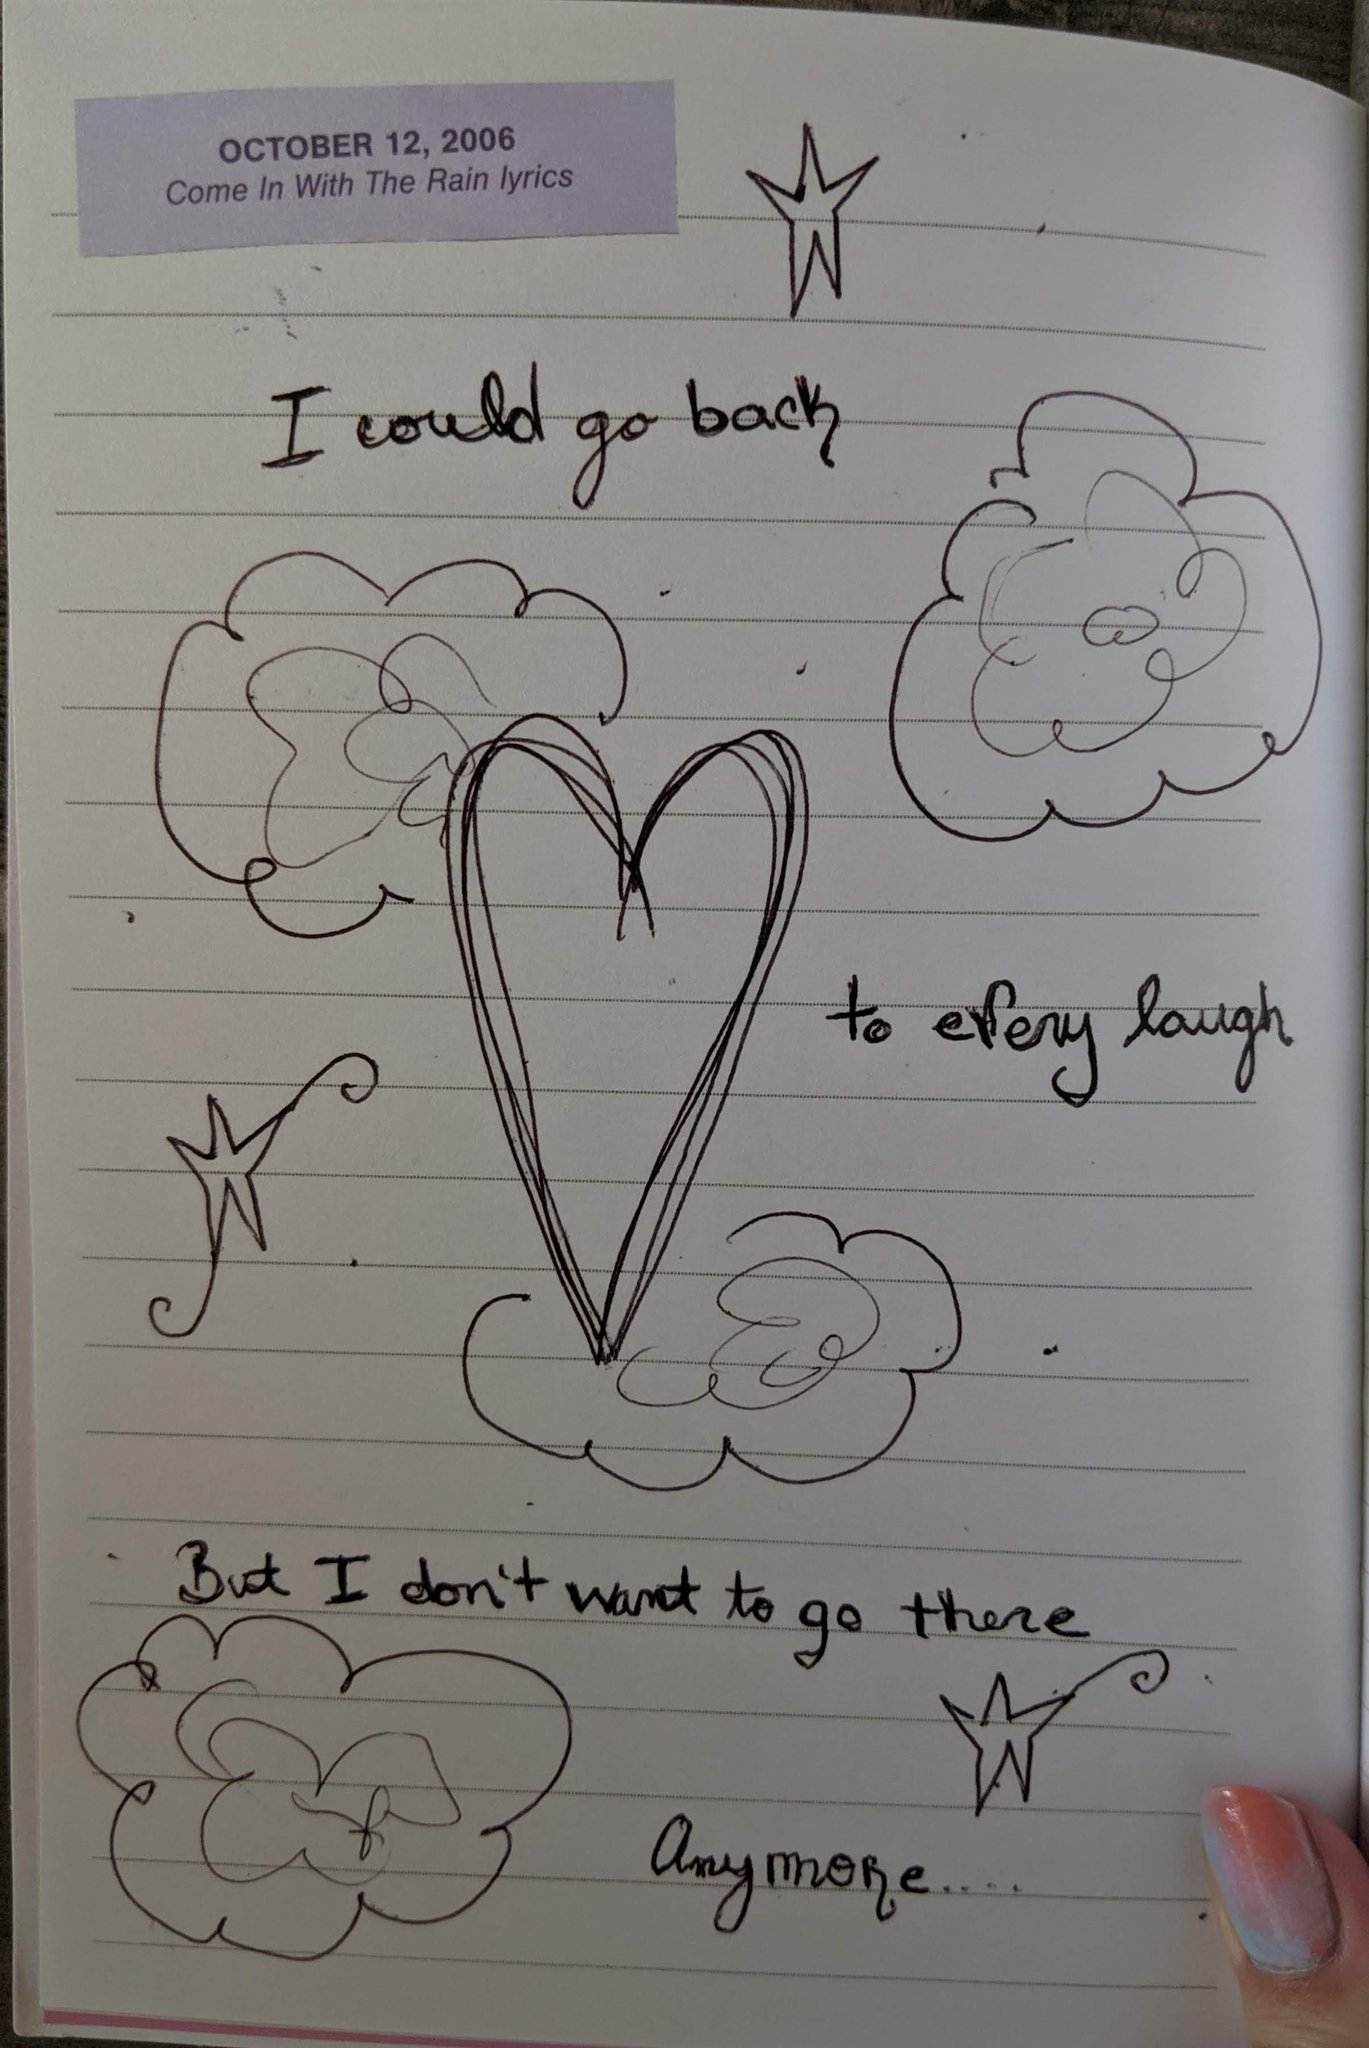 OCTOBER 12, 2006
Come In With The Rain lyrics
I could go back
to every laugh
But I don't want to go there
Anymore.....